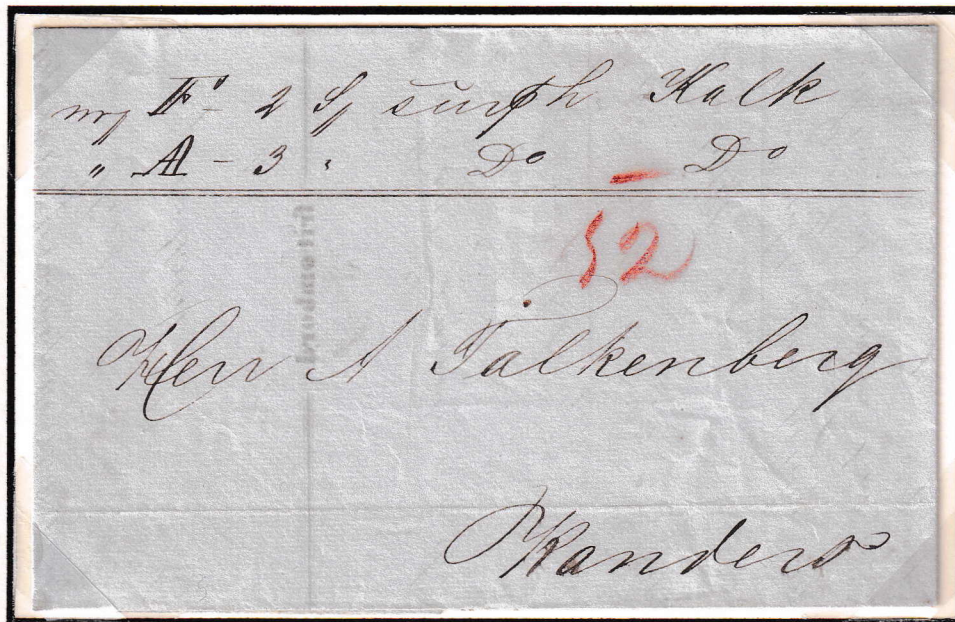 F - 2 Kalk
" A - 3 " Do Do
52
Herr A Falkenberg
Randers